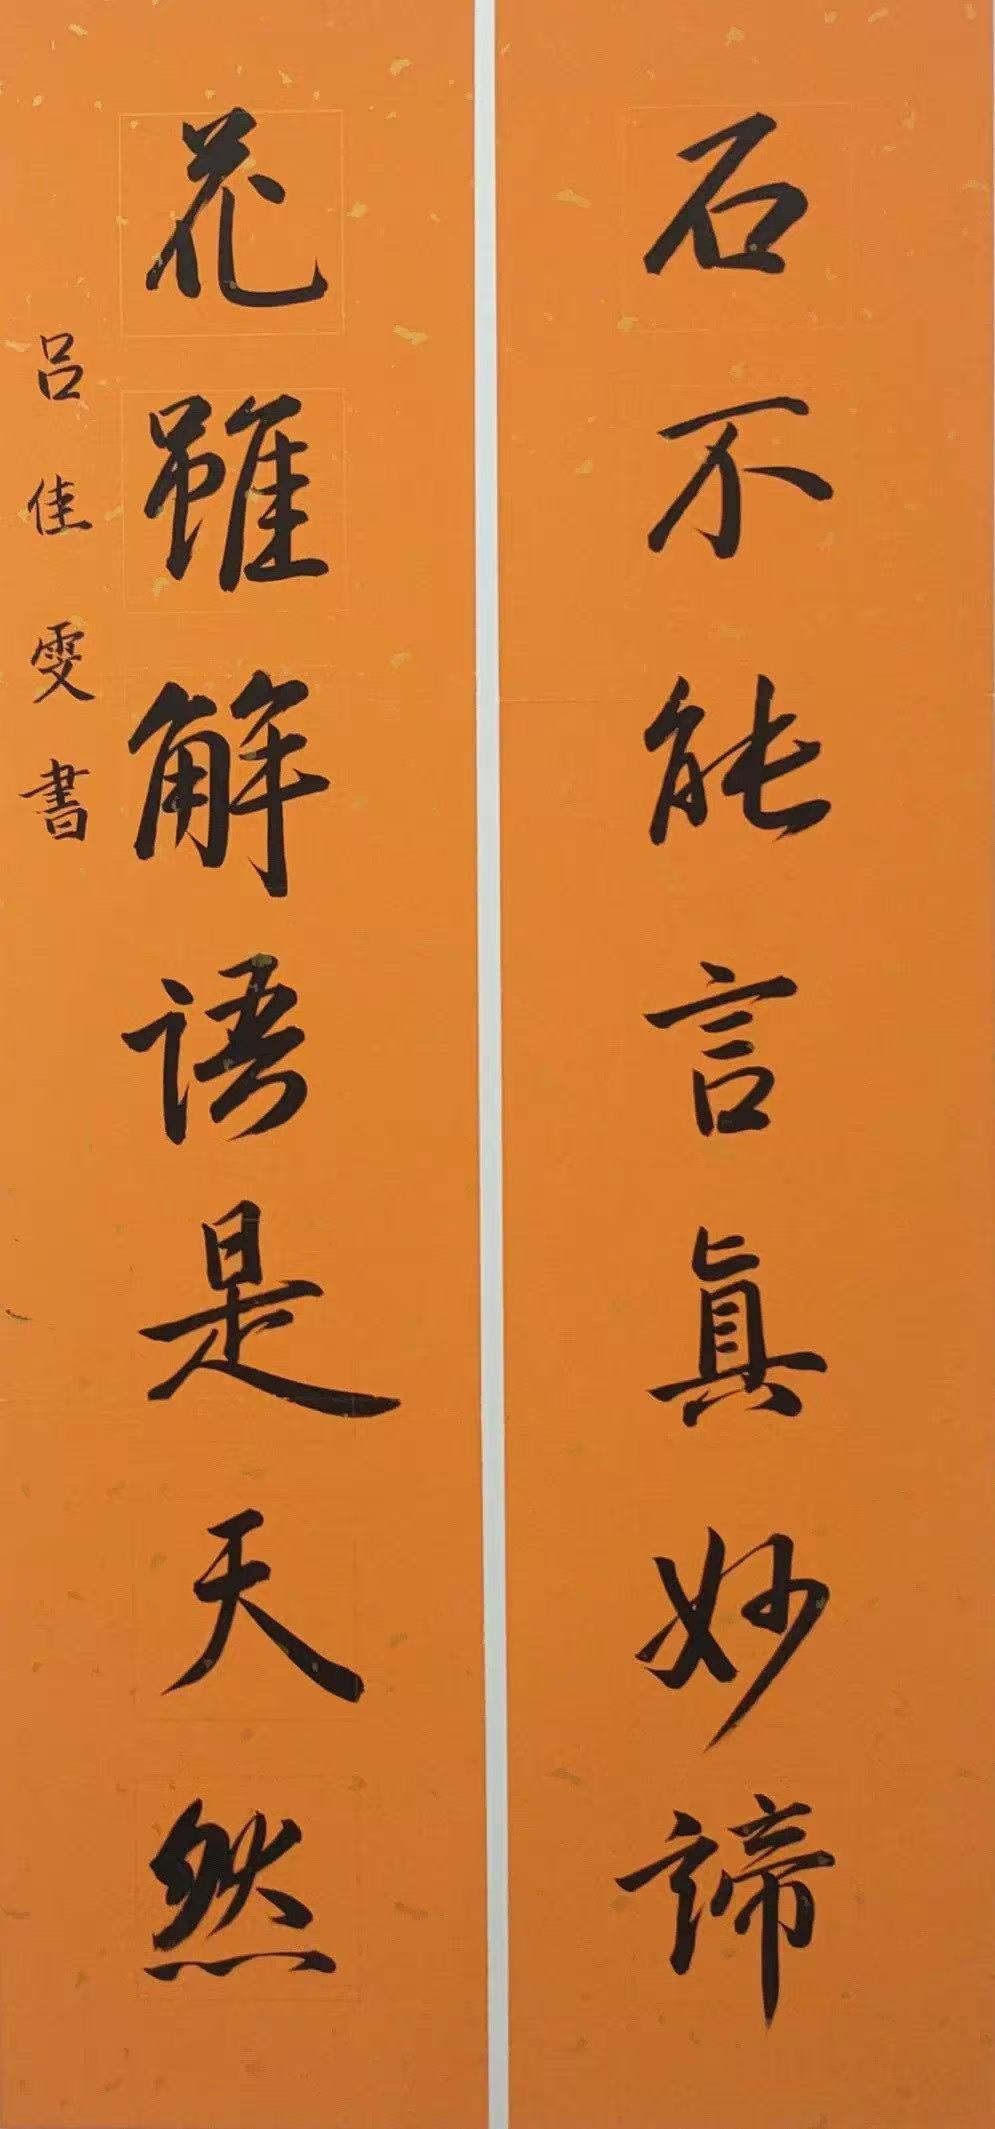 石不能言真妙諦
花雖解語是天然
吕佳雯書